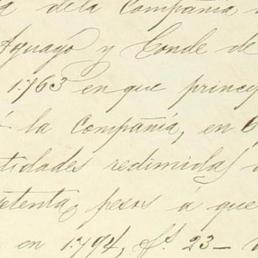 de la Compañia
Aguayo y Conde de
1.763 en que princip
á la Compañia, en 6
tidades redimidas
setenta pesos a que
en 1.794, fs. 23-